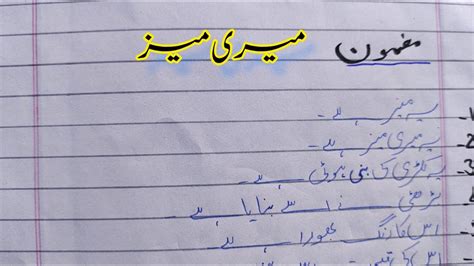 مضمون میری میز
1- یہ میز ہے۔
2- یہ میری میز ہے۔
3- یہ لکڑی کی بنی ہوئی ہے۔
بڑھئی نے اسے بنایا ہے۔
اس کا رنگ بھورا ہے۔
اس کی